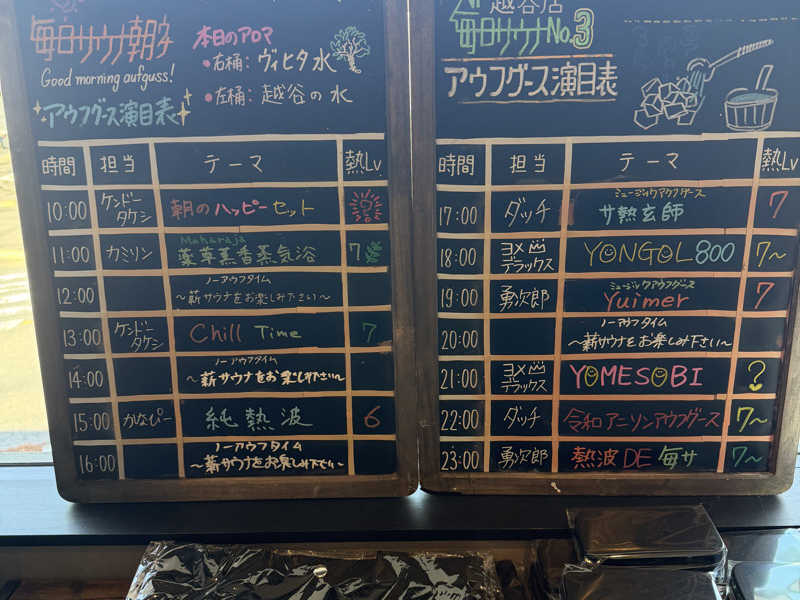 毎日サウナ朝女
Good morning aufguss!
アウフグース演目表
本日のアロマ
・右桶: ヴィヒタ水
・左桶: 越谷の水
時間 担当 テーマ 熱Lv
10:00 ケンドータケシ 朝のハッピーセット
11:00 カミリン Maharaja 薬草薫香蒸気浴 7
12:00 ノーアウフタイム ～薪サウナをお楽しみ下さい～
13:00 ケンドータケシ Chill Time 7
14:00 ノーアウフタイム ～薪サウナをお楽しみ下さい～
15:00 かなぴー 純熱波 6
16:00 ノーアウフタイム ～薪サウナをお楽しみ下さい～
越谷店
毎日サウナNo.3
アウフグース演目表
時間 担当 テーマ 熱Lv
17:00 ダッチ ミュージックアウフグース サ熱玄師 7
18:00 ヨメデラックス YONGOL800 7～
19:00 勇次郎 ミュージックアウフグース Yuimer 7
20:00 ノーアウフタイム ～薪サウナをお楽しみ下さい～
21:00 ヨメデラックス YOMESOBI ?
22:00 ダッチ 令和アニソンアウフグース 7～
23:00 勇次郎 熱波DE毎サ 7～